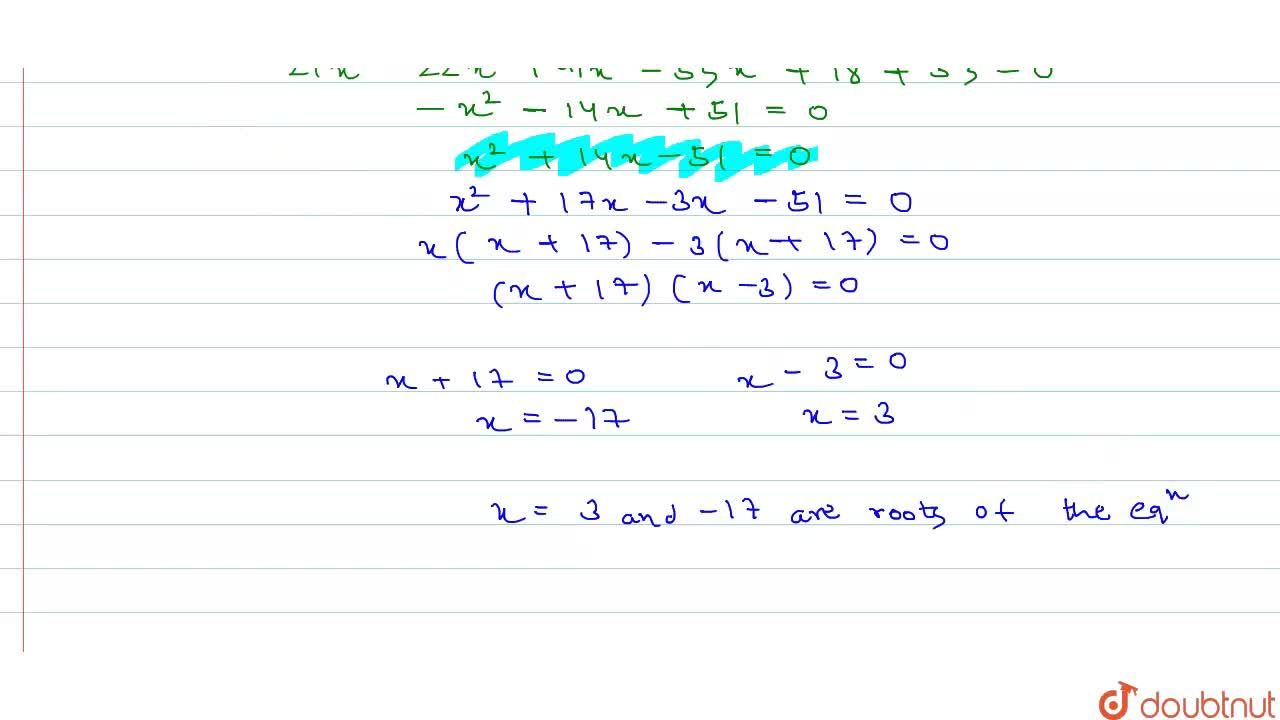 - x² - 14x + 51 = 0
x² + 14x - 51 = 0
x² + 17x - 3x - 51 = 0
x ( x + 17) - 3 (x + 17) = 0
(x + 17) (x - 3) = 0
x + 17 = 0 x - 3 = 0
x = - 17 x = 3
x = 3 and -17 are roots of the eqⁿ
doubtnut